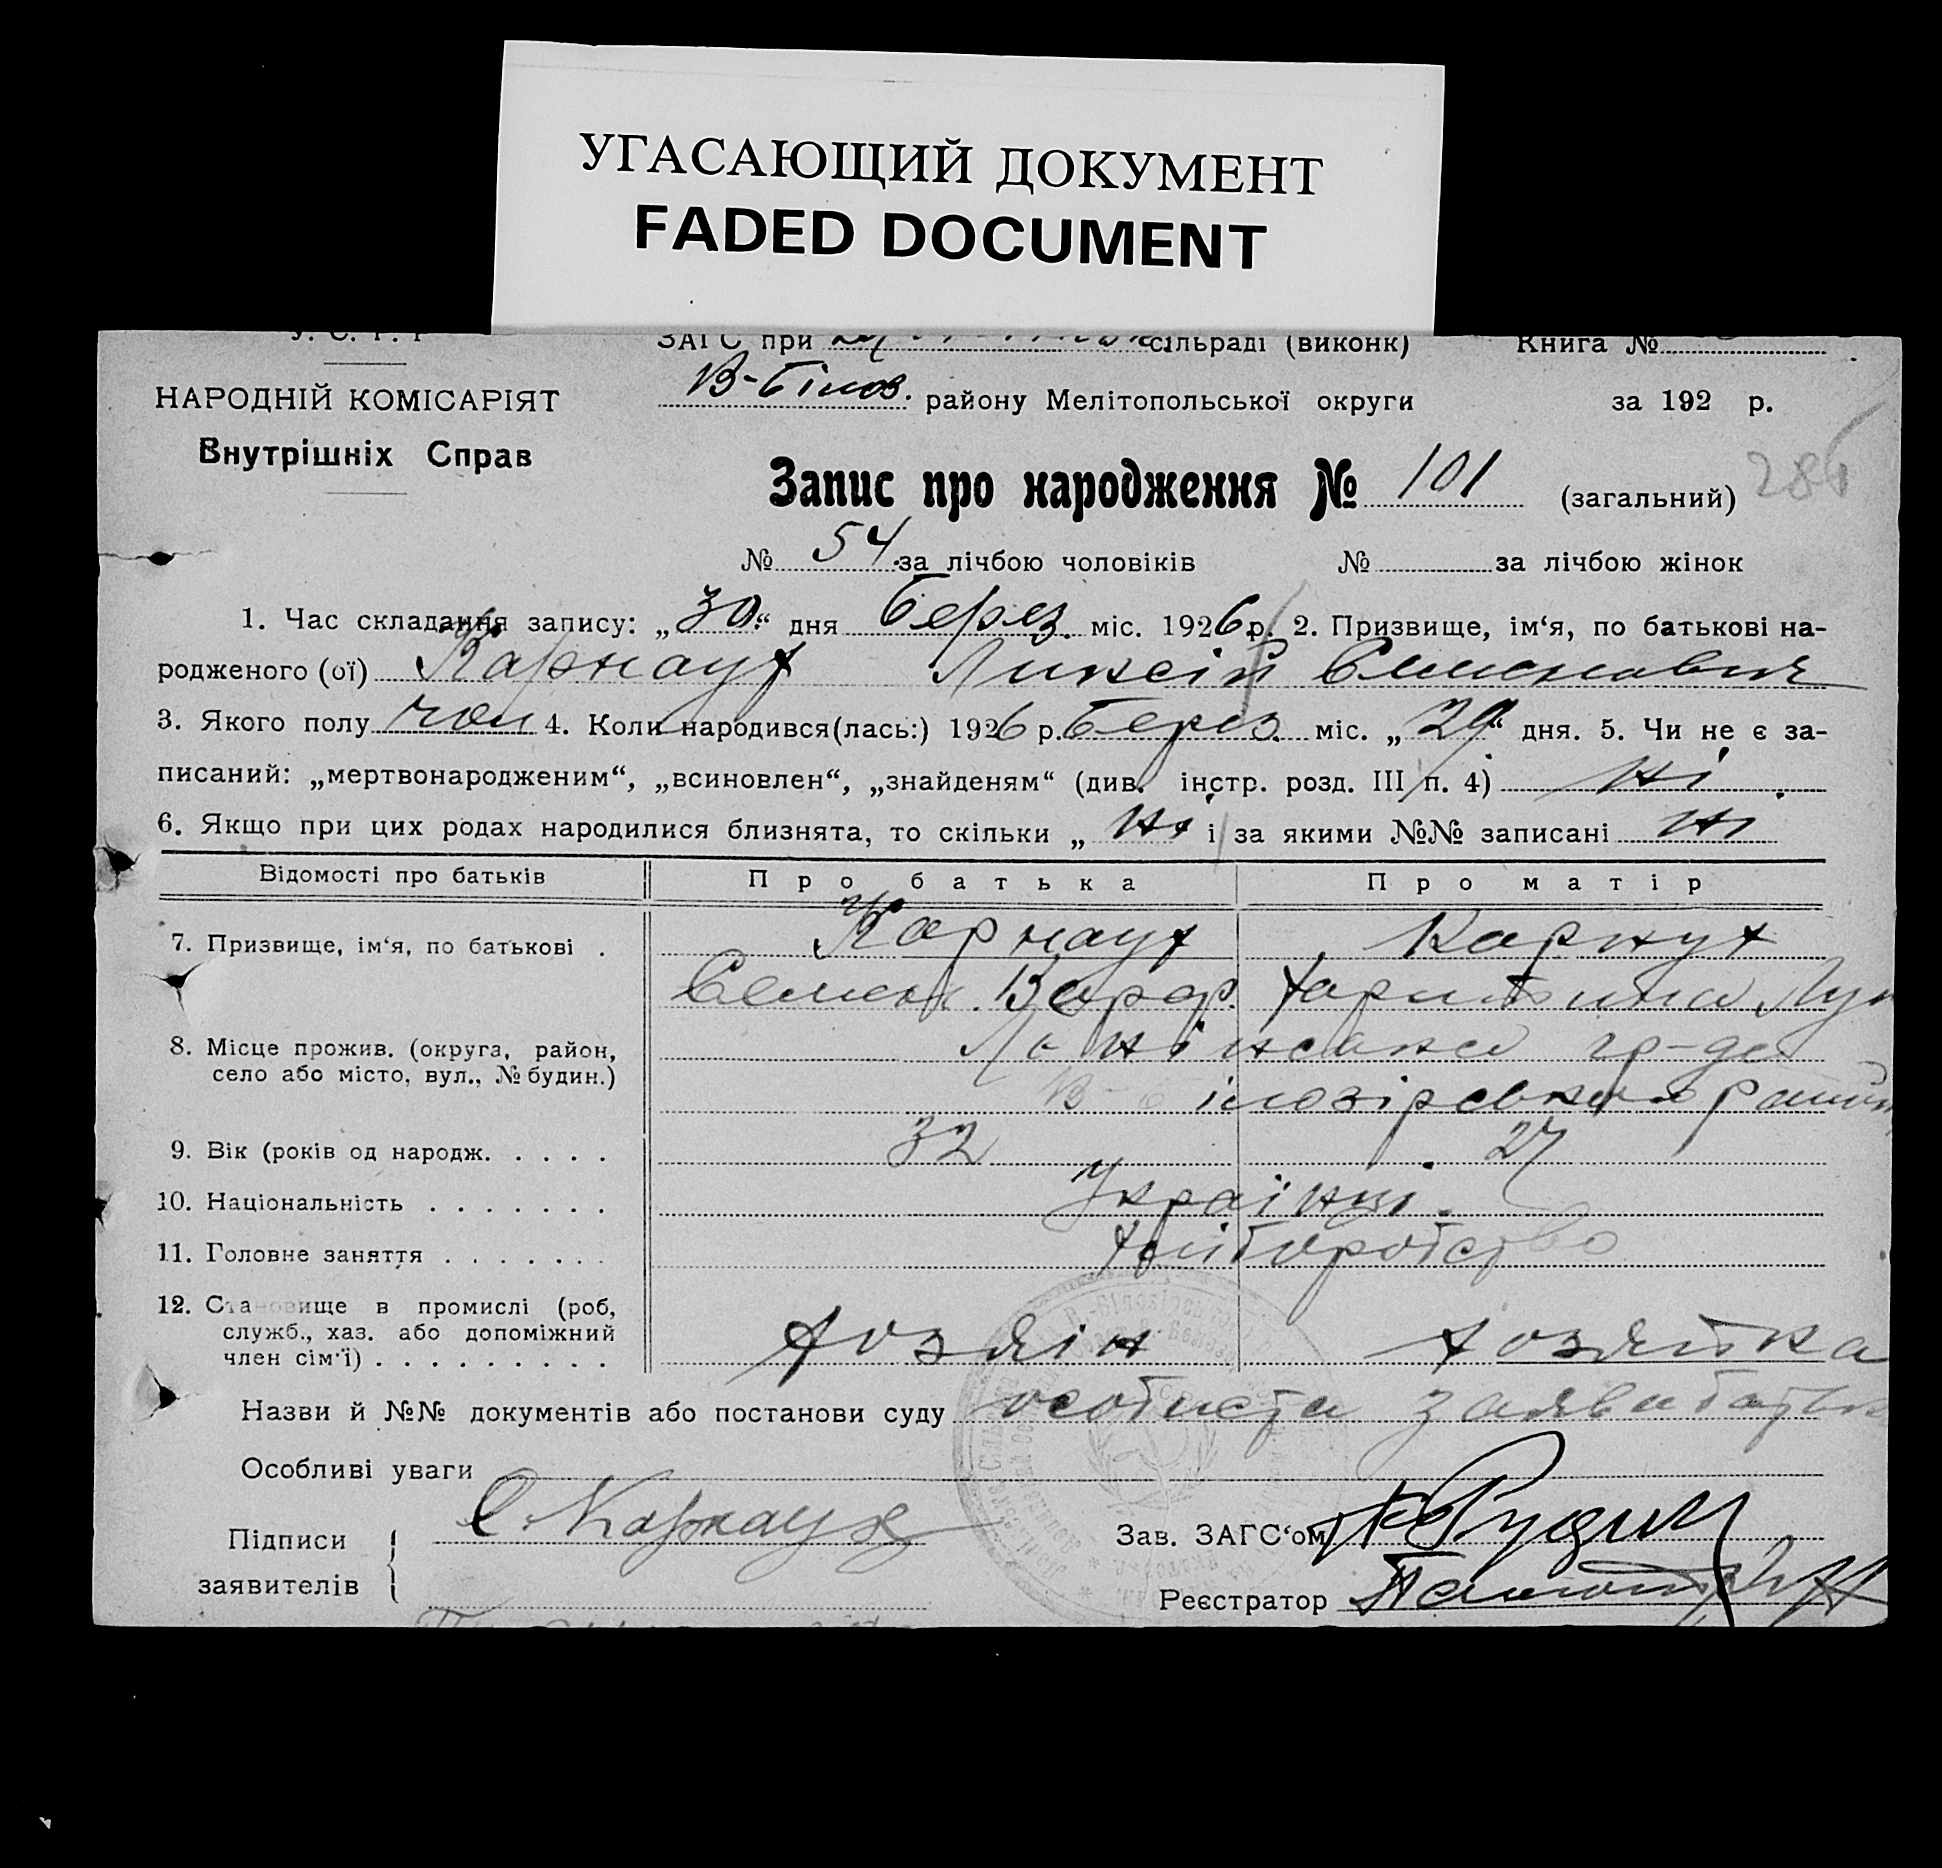 УГАСАЮЩИЙ ДОКУМЕНТ
FADED DOCUMENT
У. С. Р. Р
ЗАГС при сільраді (виконк) Книга №
НАРОДНІЙ КОМІСАРІЯТ
В-Білоз. району Мелітопольської округи за 192 р.
Внутрішніх Справ
Запис про народження № 101 (загальний) 286
№ 54 за лічбою чоловіків № за лічбою жінок
1. Час складання запису: „30“ дня Берез. міс. 1926 р. 2. Призвище, ім‘я, по батькові на-
родженого (ої) Карнаух Ликсій Семенович
3. Якого полу чол 4. Коли народився(лась:) 1926 р. Берез. міс. „29“ дня. 5. Чи не є за-
писаний: „мертвонародженим“, „всиновлен“, „знайденям“ (див. інстр. розд. III п. 4) ні
6. Якщо при цих родах народилися близнята, то скільки „ ні і за якими №№ записані ні
Відомості про батьків Про батька Про матір
7. Призвище, ім‘я, по батькові . Карнаух Карнух
Семен. Вараф. Харитина Лук
8. Місце прожив. (округа, район, гр-да
село або місто, вул., № будин.) В-Білозірського
9. Вік (років од народж. . . . . 32 27
10. Національність . . . . . . . Українці.
11. Головне заняття . . . . . . . Хліборобство
12. Становище в промислі (роб,
служб., хаз. або допоміжний
член сім‘ї) . . . . . . . . . Хозяїн Хозяйка
Назви й №№ документів або постанови суду особиста заява батьк
Особливі уваги
Підписи С. Карнаух Зав. ЗАГС‘ом
заявителів Реєстратор